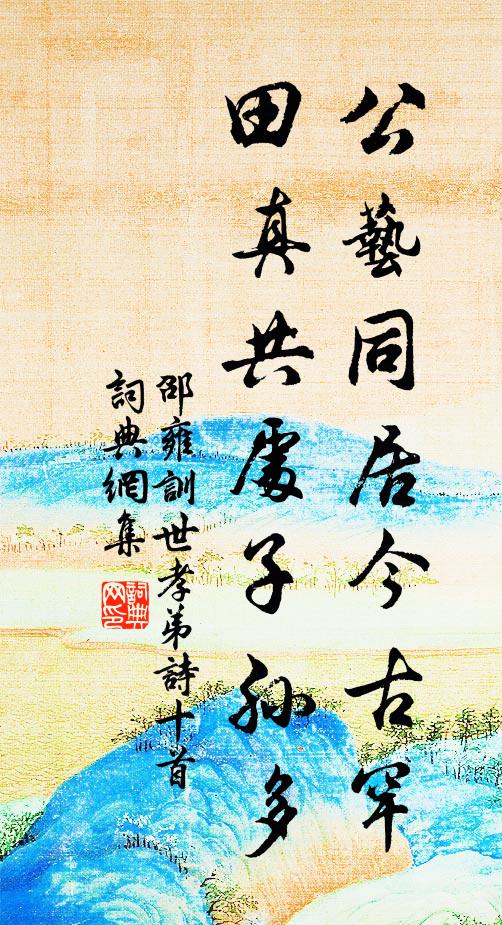 公藝同居今古罕
田真共處子孫多
邵雍訓世孝弟詩十首
詞典網集
詞典
网印